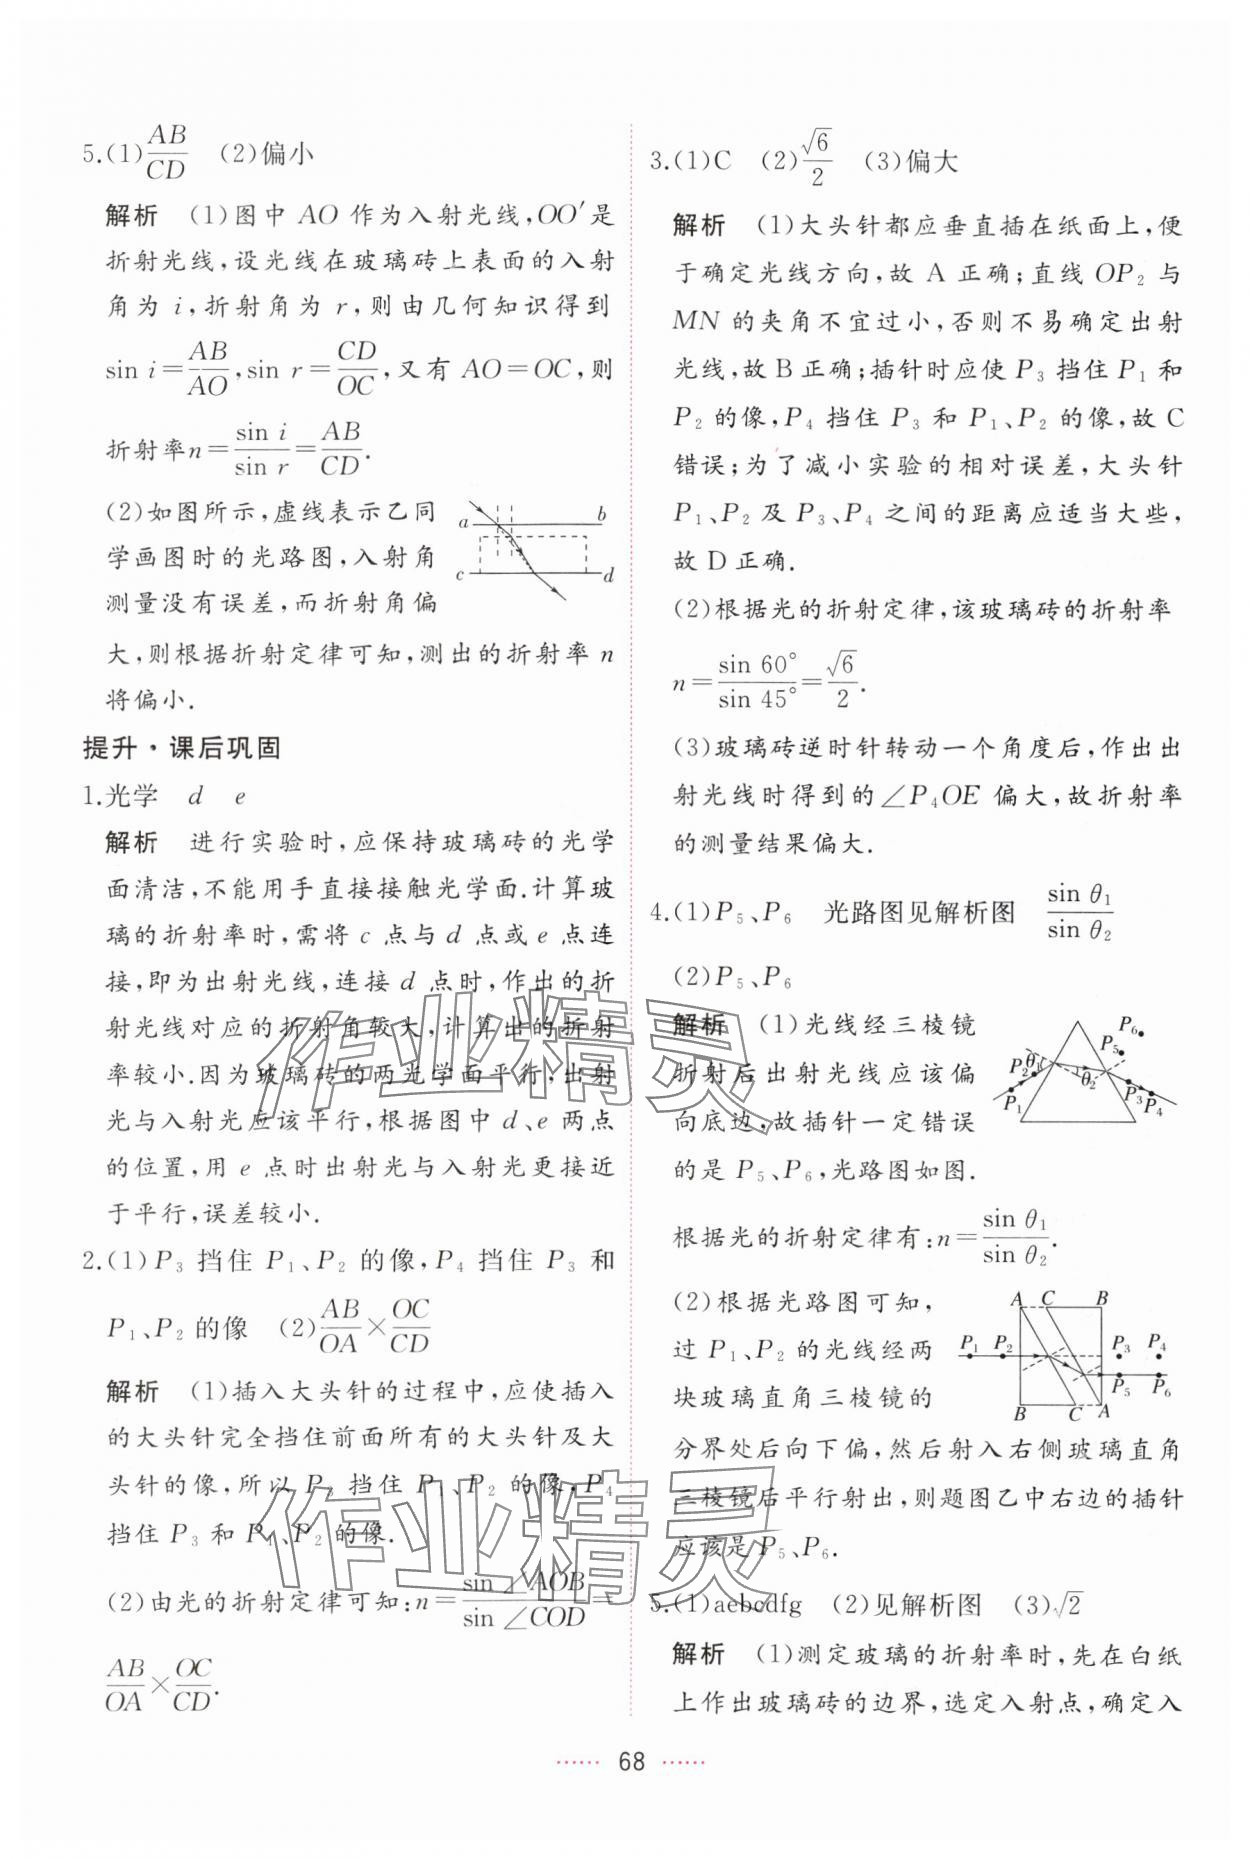 5.(1)AB/CD (2)偏小
解析 (1)图中 AO 作为入射光线,OO′是
折射光线,设光线在玻璃砖上表面的入射
角为 i,折射角为 r,则由几何知识得到
sin i=AB/AO,sin r=CD/OC,又有 AO=OC,则
折射率n=sin i/sin r=AB/CD.
(2)如图所示,虚线表示乙同
学画图时的光路图,入射角
测量没有误差,而折射角偏
大,则根据折射定律可知,测出的折射率 n
将偏小.
a b
c d
提升·课后巩固
1.光学 d e
解析 进行实验时,应保持玻璃砖的光学
面清洁,不能用手直接接触光学面.计算玻
璃的折射率时,需将 c 点与 d 点或 e 点连
接,即为出射光线,连接 d 点时,作出的折
射光线对应的折射角较大,计算出的折射
率较小.因为玻璃砖的两光学面平行,出射
光与入射光应该平行,根据图中 d、e 两点
的位置,用 e 点时出射光与入射光更接近
于平行,误差较小.
2.(1)P₃ 挡住 P₁、P₂ 的像,P₄ 挡住 P₃ 和
P₁、P₂ 的像 (2)AB/OA×OC/CD
解析 (1)插入大头针的过程中,应使插入
的大头针完全挡住前面所有的大头针及大
头针的像,所以 P₃ 挡住 P₁、P₂ 的像,P₄
挡住 P₃ 和 P₁、P₂ 的像.
(2)由光的折射定律可知:n=sin∠AOB/sin∠COD=
AB/OA×OC/CD.
3.(1)C (2)√6/2 (3)偏大
解析 (1)大头针都应垂直插在纸面上,便
于确定光线方向,故 A 正确;直线 OP₂ 与
MN 的夹角不宜过小,否则不易确定出射
光线,故 B 正确;插针时应使 P₃ 挡住 P₁ 和
P₂ 的像,P₄ 挡住 P₃ 和 P₁、P₂ 的像,故 C
错误;为了减小实验的相对误差,大头针
P₁、P₂ 及 P₃、P₄ 之间的距离应适当大些,
故 D 正确.
(2)根据光的折射定律,该玻璃砖的折射率
n=sin 60°/sin 45°=√6/2.
(3)玻璃砖逆时针转动一个角度后,作出出
射光线时得到的∠P₄OE 偏大,故折射率
的测量结果偏大.
4.(1)P₅、P₆ 光路图见解析图 sin θ₁/sin θ₂
(2)P₅、P₆
解析 (1)光线经三棱镜
折射后出射光线应该偏
向底边,故插针一定错误
的是 P₅、P₆,光路图如图.
P₁ P₂ θ₁ θ₂ P₅ P₆ P₃ P₄
根据光的折射定律有:n=sin θ₁/sin θ₂.
(2)根据光路图可知,
过 P₁、P₂ 的光线经两
块玻璃直角三棱镜的
A C B
P₁ P₂ P₃ P₄
P₅ P₆
B C A
分界处后向下偏,然后射入右侧玻璃直角
三棱镜后平行射出,则题图乙中右边的插针
应该是 P₅、P₆.
5.(1)aebcdfg (2)见解析图 (3)√2
解析 (1)测定玻璃的折射率时,先在白纸
上作出玻璃砖的边界,选定入射点,确定入
68
作业精灵
作业精灵